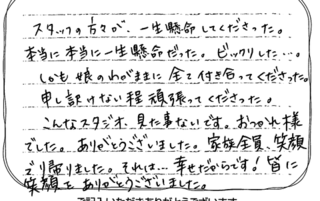 スタッフの方々が、一生懸命してくださった。
本当に本当に一生懸命だった。ビックリした…。
しかも娘のわがままに全て付き合ってくださった。
申し訳けない程頑張ってくださった。
こんなスタジオ、見た事ないです。おつかれ様
でした。ありがとうございました。家族全員、笑顔
で帰りました。それは…幸せだからです!皆に
笑顔を ありがとうございました。
ご記入いただきありがとうございます